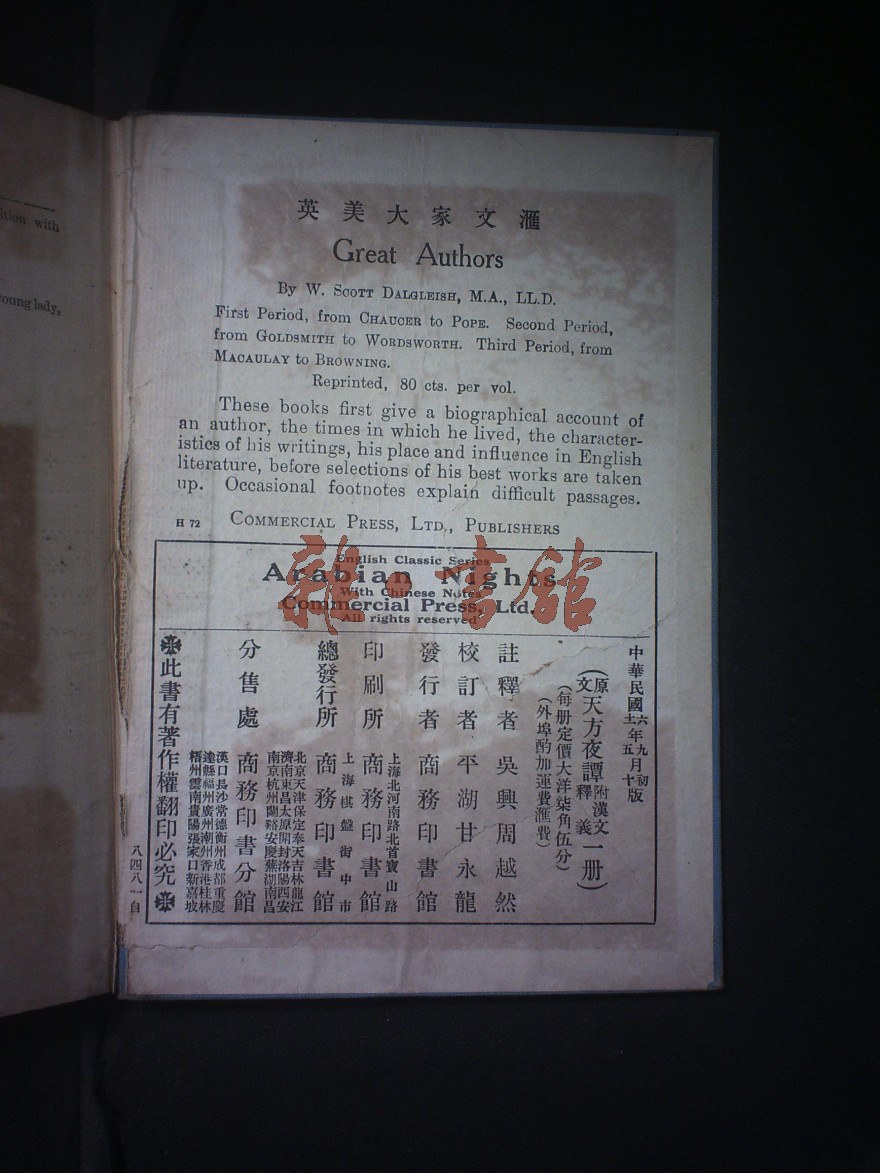 ition with
young lady,
英美大家文滙
Great Authors
By W. Scott Dalgleish, M.A., LL.D.
First Period, from Chaucer to Pope. Second Period,
from Goldsmith to Wordsworth. Third Period, from
Macaulay to Browning.
Reprinted, 80 cts. per vol.
These books first give a biographical account of
an author, the times in which he lived, the character-
istics of his writings, his place and influence in English
literature, before selections of his best works are taken
up. Occasional footnotes explain difficult passages.
H 72 Commercial Press, Ltd., Publishers
English Classic Series
Arabian Nights
With Chinese Notes
Commercial Press, Ltd.
All rights reserved
雜·書館
中華民國
六年九月初
士五十版
(原文天方夜譚附漢文釋義一册)
(每册定價大洋柒角伍分)
(外埠酌加運費滙費)
註釋者 吳興周越然
校訂者 平湖甘永龍
發行者 商務印書館
上海北河南路北首寶山路
印刷所 商務印書館
上海棋盤街中市
總發行所 商務印書館
北京天津保定奉天吉林龍江
濟南東昌太原開封洛陽西安
南京杭州蘭谿安慶蕪湖南昌
分售處 商務印書分館
漢口長沙常德衡州成都重慶
達縣福州廣州潮州香港桂林
梧州雲南貴陽張家口新嘉坡
※此書有著作權翻印必究※
八四八一自